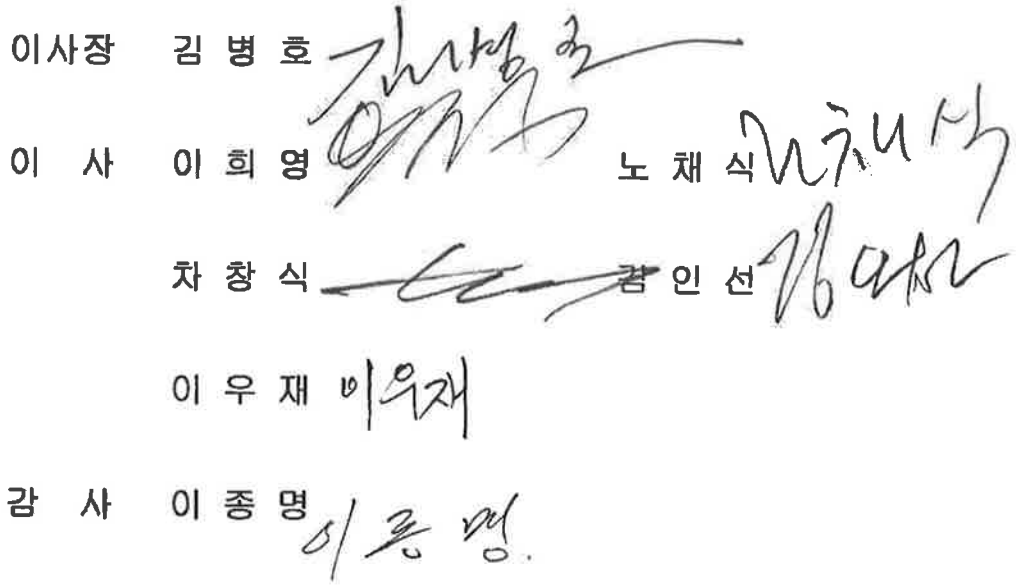 이사장 김 병 호 김병호
이 사 이 희 영 노 채 식 노채식
차 창 식 김 인 선 김인선
이 우 재 이우재
감 사 이 종 명 이종명.